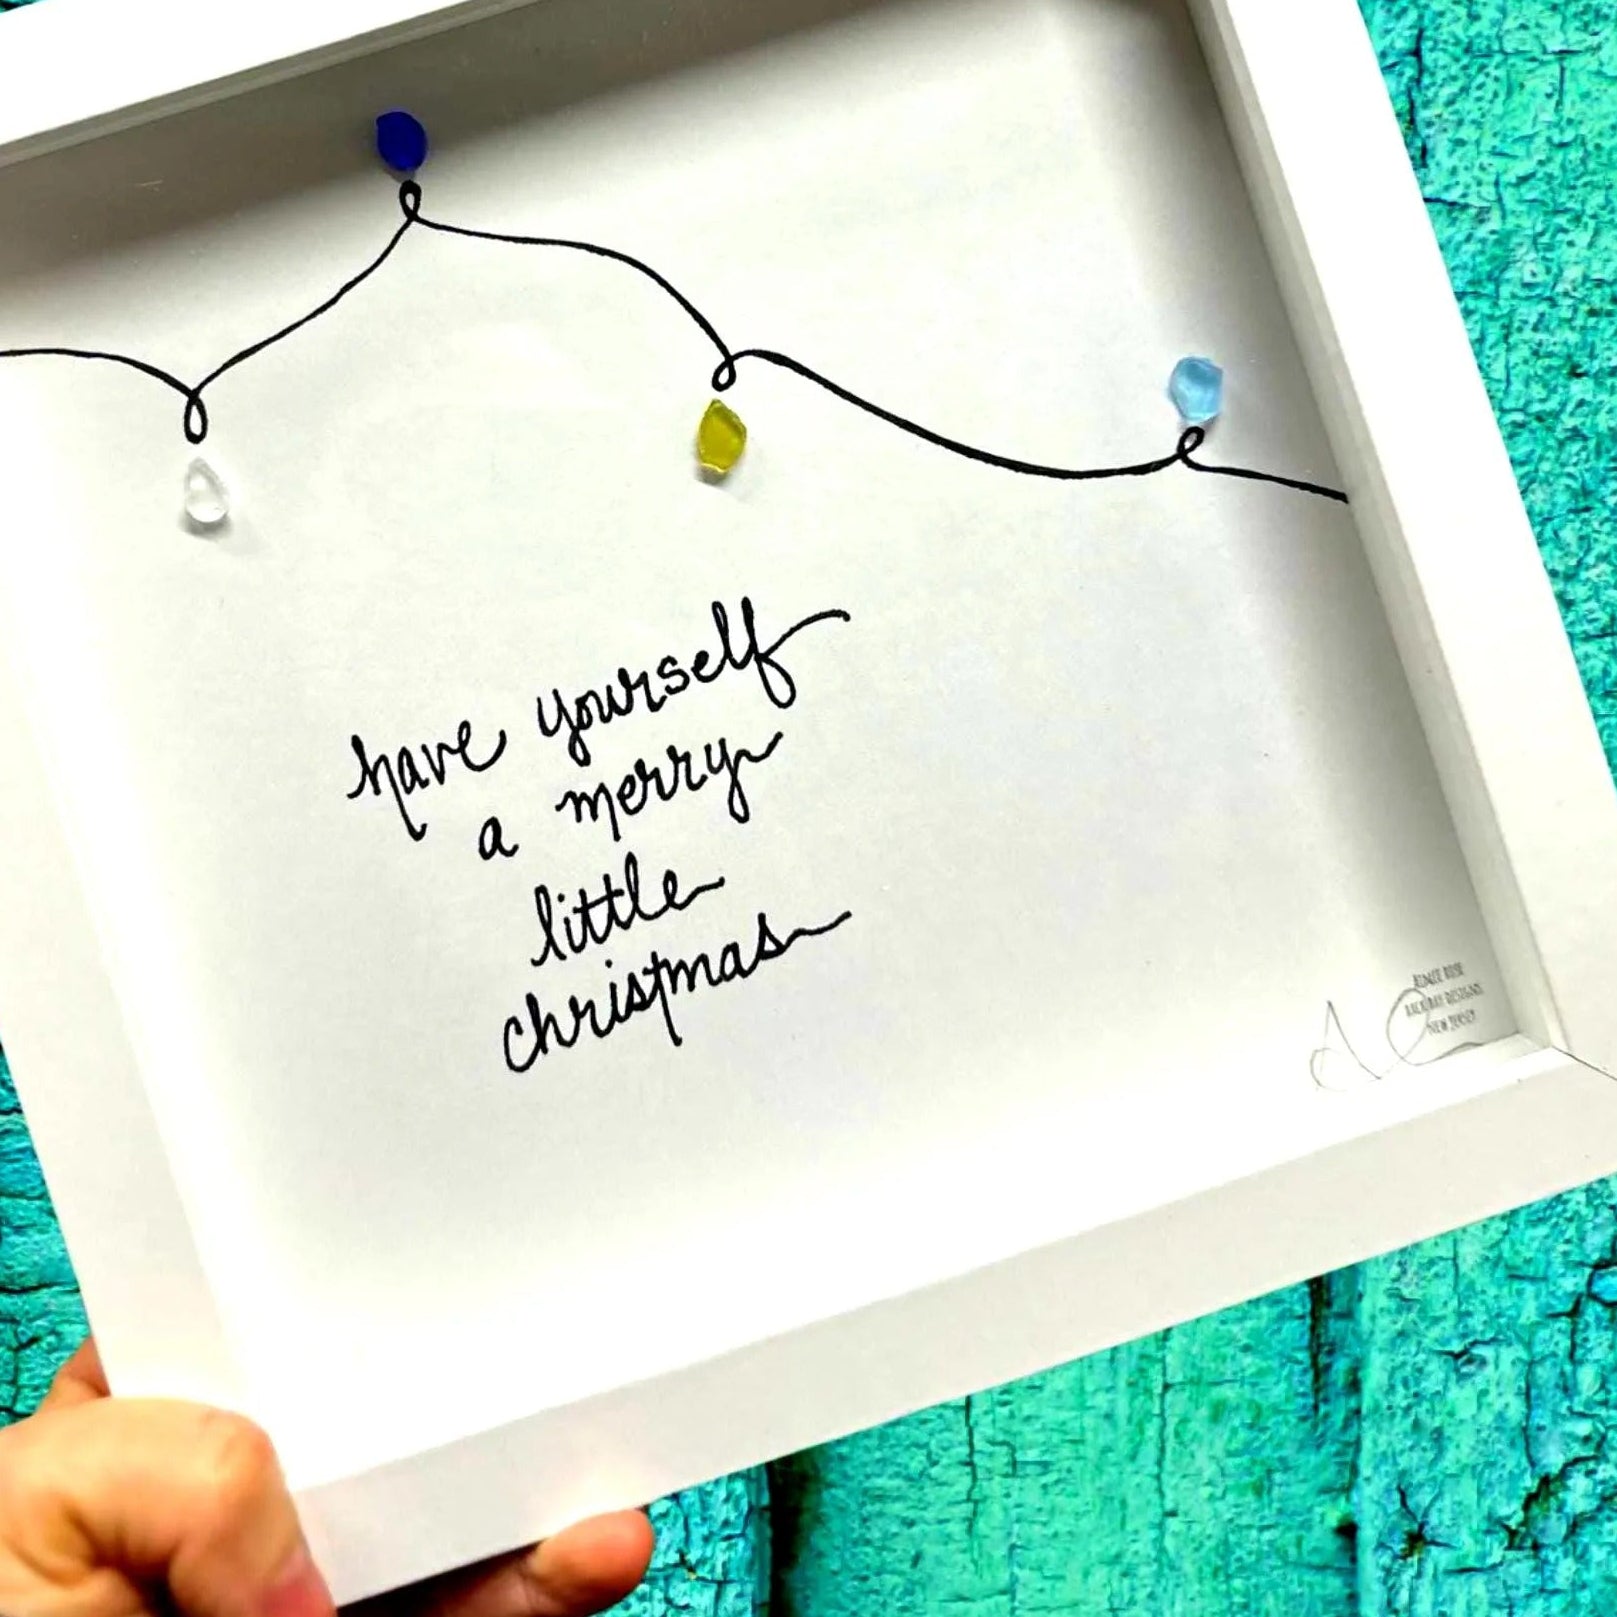 have yourself
a merry
little
christmas
BACK BAY DESIGNS
NEW JERSEY